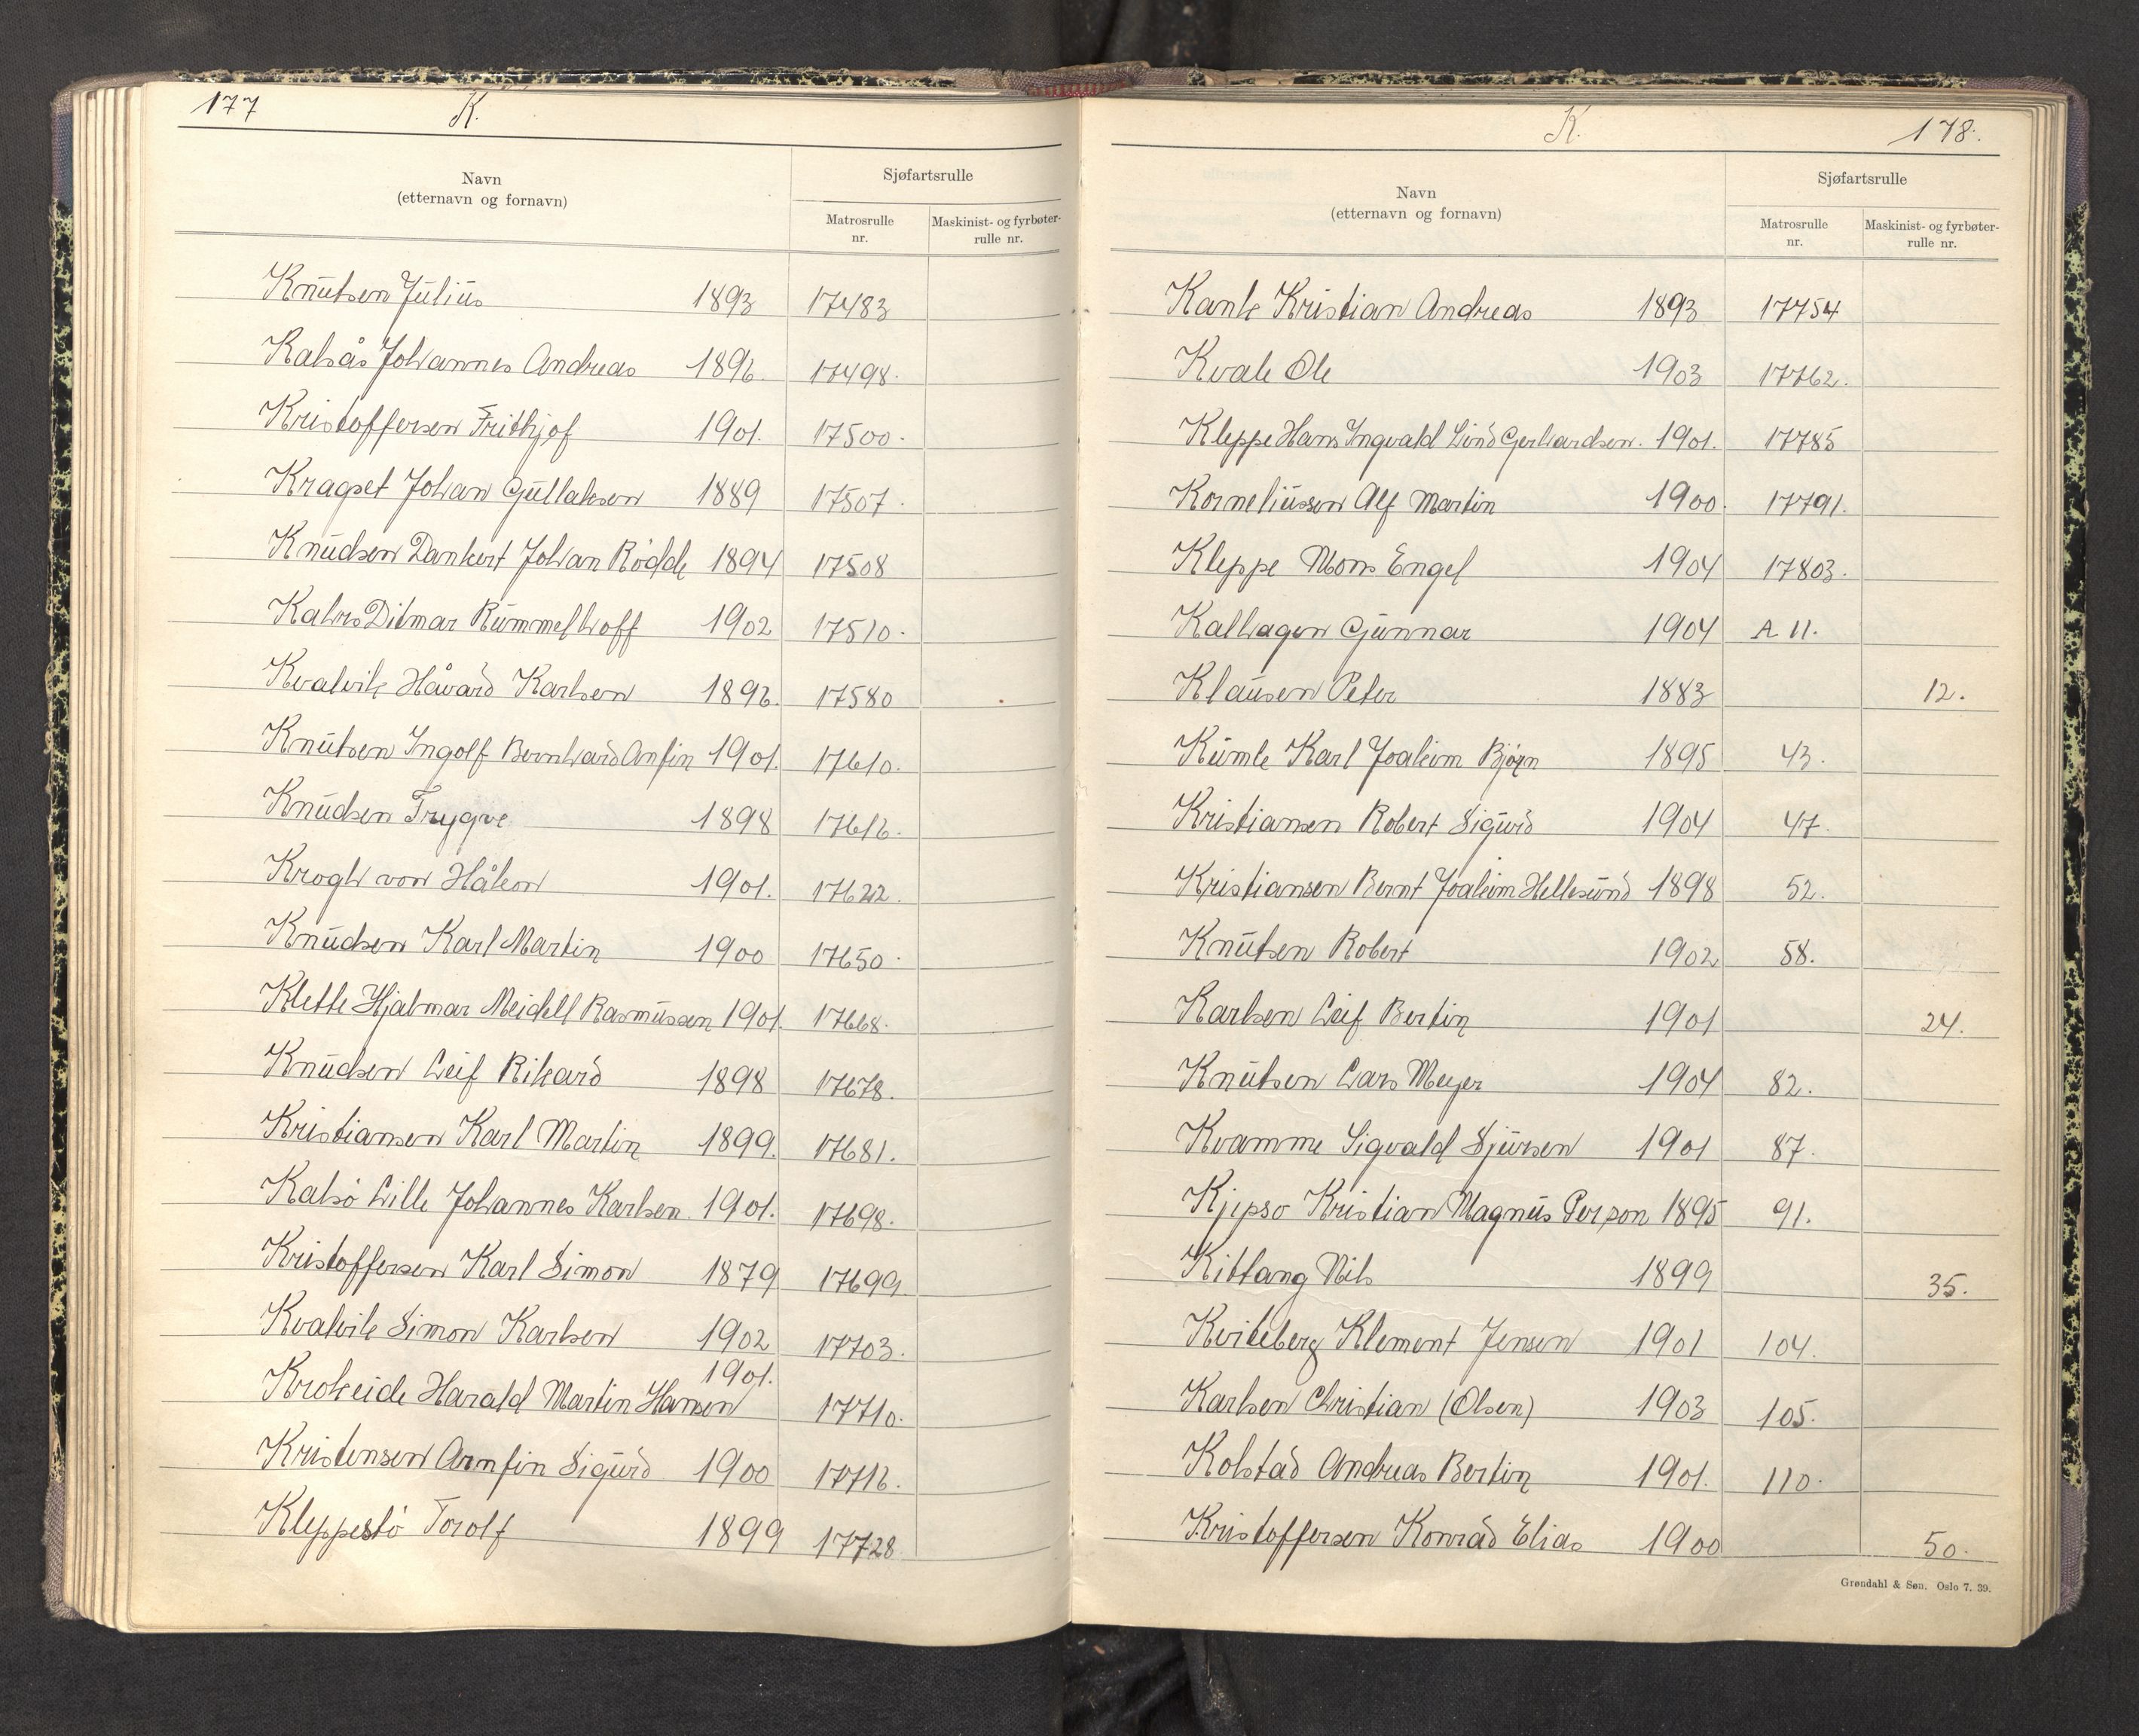 177 K.
Navn
(etternavn og fornavn)
Sjøfartsrulle
Matrosrulle
nr.
Maskinist- og fyrbøter-
rulle nr.
Knutsen Julius 1893 17483
Kalsås Johannes Andreas 1896. 17498.
Kristoffersen Frithjof 1901. 17500.
Kragset Johan Gullaksen 1889 17507.
Knudsen Dankert Johan Rødde 1894 17508
Kahrs Ditmar Rummelhoff 1902 17510.
Kvalvik Håvard Karlsen 1896. 17580
Knutsen Ingolf Bernhard Anfin 1901. 17610.
Knudsen Trygve 1898 17616.
Krogh von Håkon 1901. 17622.
Knudsen Karl Martin 1900 17650.
Klette Hjalmar Meidell Rasmussen 1901. 17668.
Knudsen Leif Rikard 1898 17678.
Kristiansen Karl Martin 1899. 17681.
Kalsø Lille Johannes Karlsen. 1901. 17698.
Kristoffersen Karl Simon 1879 17699.
Kvalvik Simon Karlsen 1902 17703.
Krokeide Harald Martin Hansen 1901. 17710.
Kristensen Arnfin Sigurd 1900 17716.
Kleppestø Torolf 1899 17728
K. 178.
Navn
(etternavn og fornavn)
Sjøfartsrulle
Matrosrulle
nr.
Maskinist- og fyrbøter-
rulle nr.
Kristian Andreas 1893 17754
Kvale Ole 1903 17762.
Kleppe Hans Ingvald Lind Gerhardsen. 1901. 17785
Korneliussen Alf Martin 1900. 17791.
Kleppe Mons Engel 1904 17803.
Kalhagen Gunnar 1904 A 11.
Klausen Peter 1883 12.
Kumle Karl Joakim Bjørn 1895 43.
Kristiansen Robert Sigurd 1904 47.
Kristiansen Bernt Joakim Hellesund 1898 52.
Knutsen Robert 1902 58.
Karlsen Leif Bertin 1901 24.
Knutsen Lars Meyer 1904 82.
Kvamme Sigvald Sjursen 1901 87.
Kjepso Kristian Magnus Person 1895 91.
Kittang Nils 1899 35.
Kviteberg Klement Jensen 1901 104.
Karlsen Christian (Olsen) 1903 105.
Kolstad Andreas Bertin 1901. 110.
Kristoffersen Konrad Elias 1900 50.
Grøndahl & Søn. Oslo 7. 39.